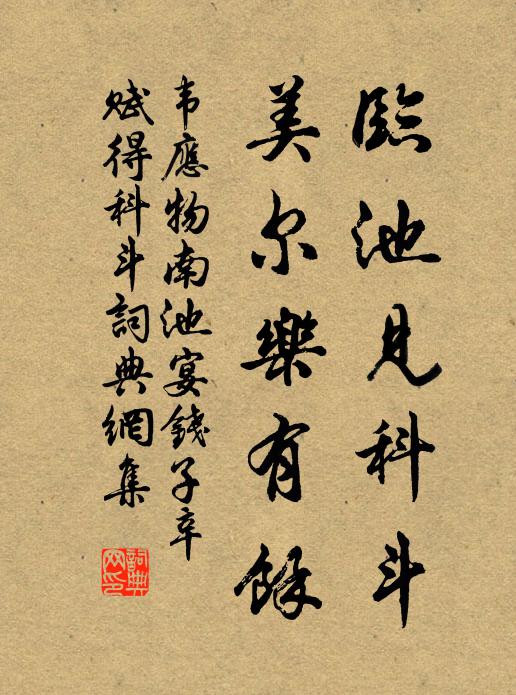 臨池見科斗
美尔樂有餘
韦應物南池宴錢子辛
賦得科斗詞典網集
詞典网印